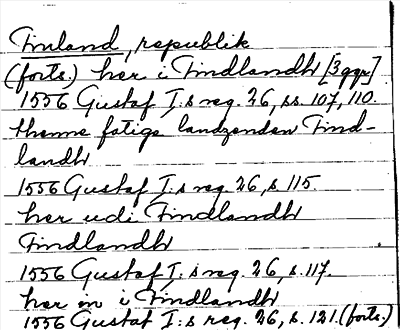 Finland, republik
(forts.) her i Findlandh [3 ggr]
1556 Gustaf I:s reg. 26, ss. 107, 110.
thenne fatige landzenden Find-
landh
1556 Gustaf I:s reg. 26, s. 115.
her udi Findlandh
Findlandh
1556 Gustaf I:s reg. 26, s. 117.
her in i Findlandh
1556 Gustaf I:s reg. 26, s. 121. (forts.)